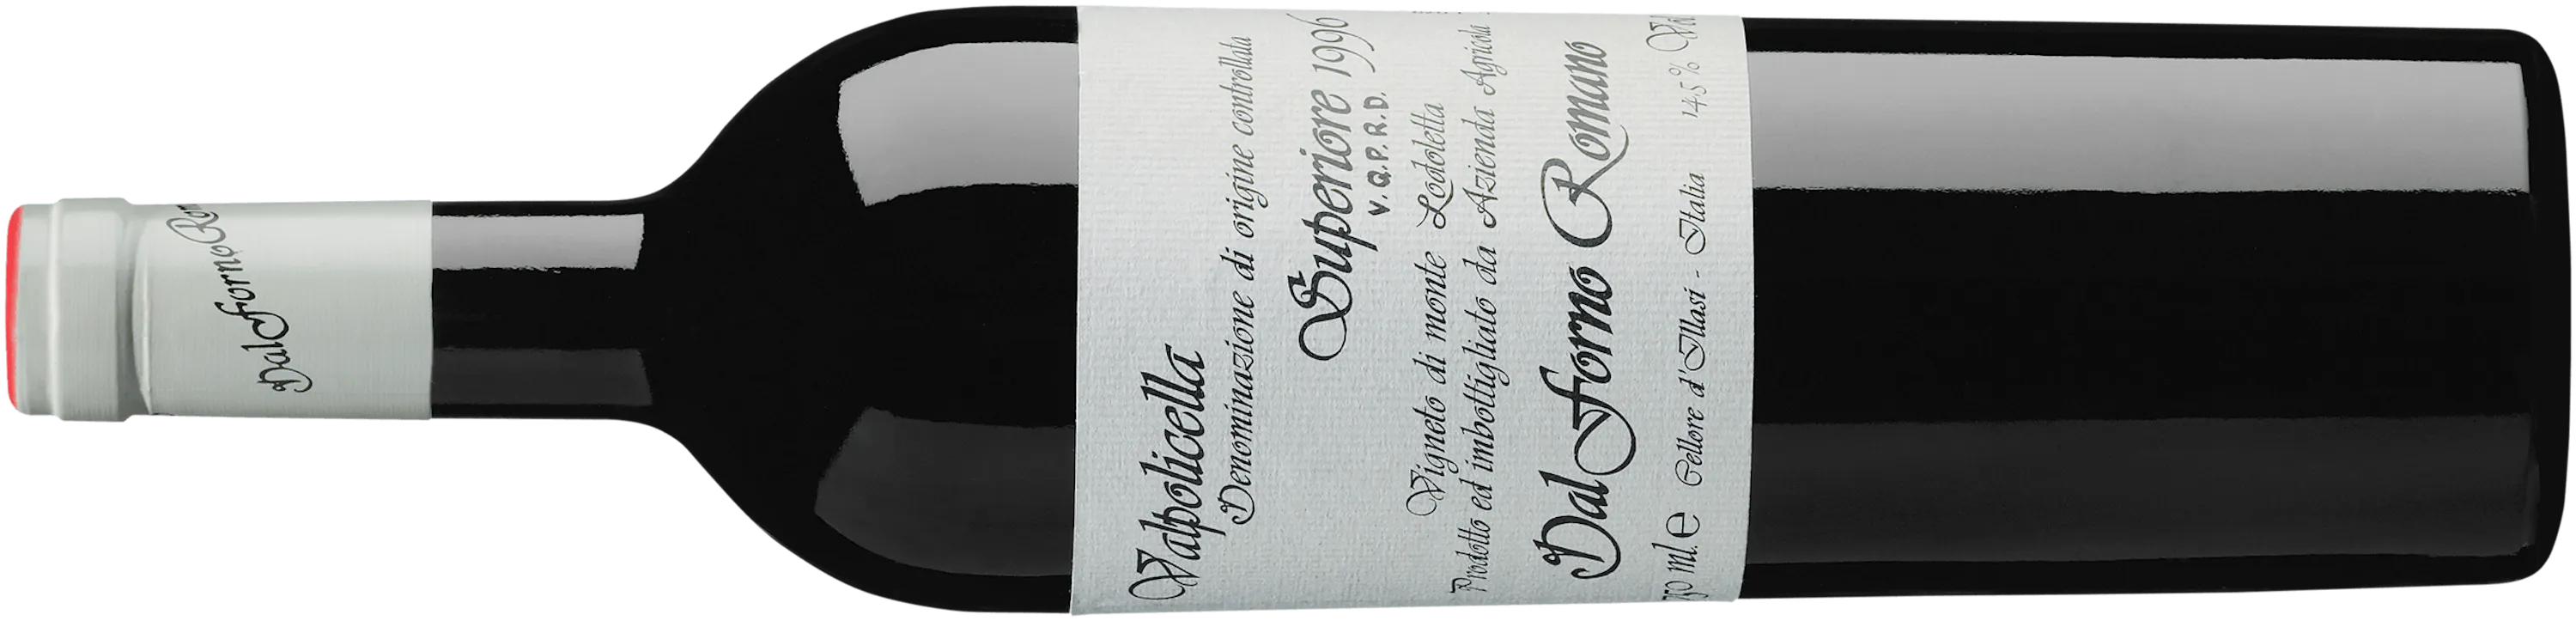 Dal Forno
Valpolicella
Denominazione di origine controllata
Superiore 1996
V.Q.P.R.D.
Vigneto di monte Lodoletta
Prodotto ed imbottigliato da Azienda Agricola
Dal Forno Romano
750 ml. e Cellore d'Illasi - Italia 14.5%